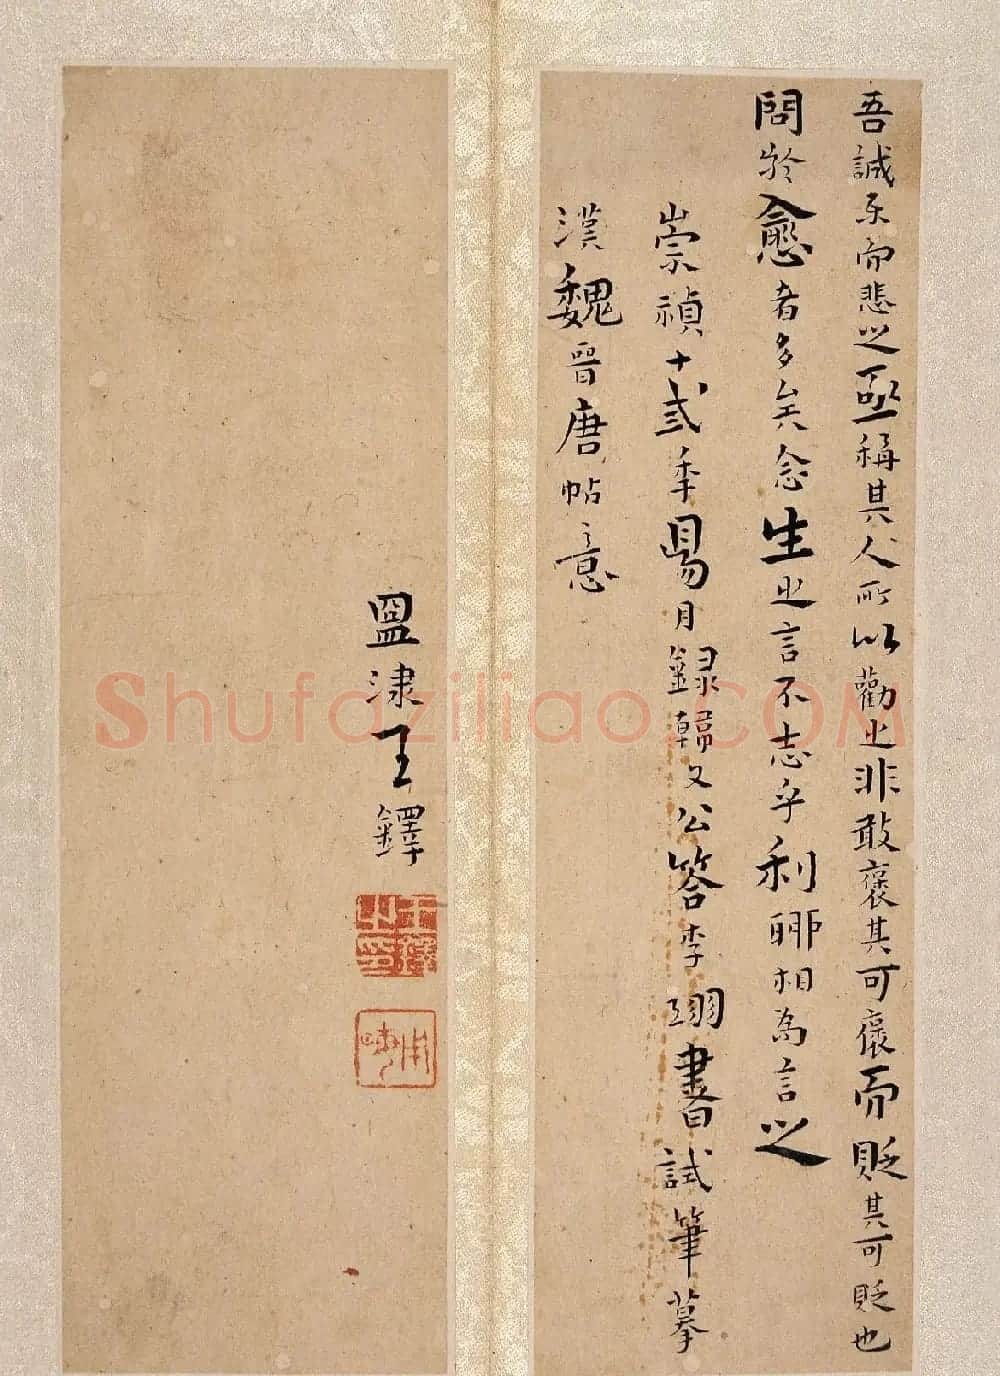 吾誠樂而悲之亟稱其人所以勸之非敢褒其可褒而貶其可貶也
問於愈者多矣念生之言不志乎利聊相為言之
崇禎十弍年易月録韓文公答李翊書試筆摹
漢魏晉唐帖意
盥涑王鐸
王鐸之印
Shufaziliao.COM